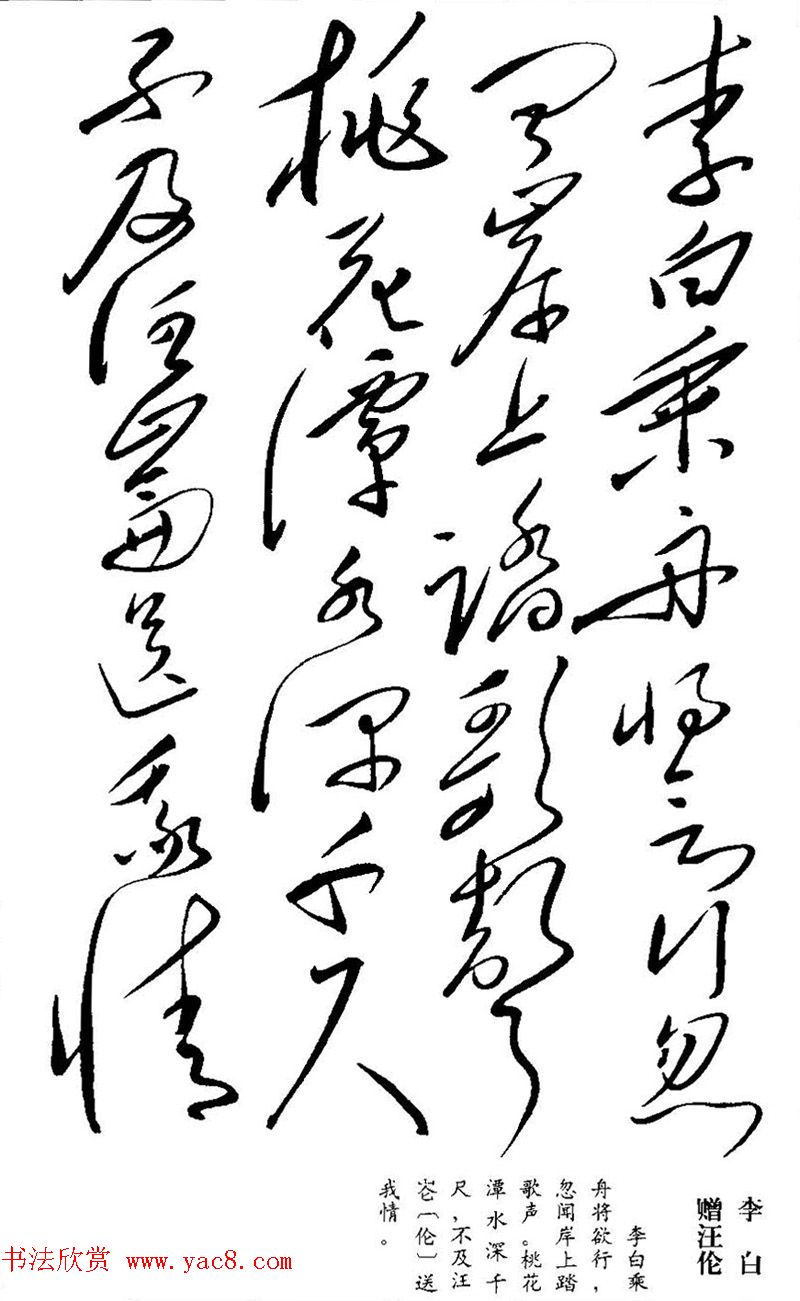 李白乘舟将欲行忽
闻岸上踏歌聲
桃花潭水深千尺
不及汪崙送我情
李白
赠汪伦
李白乘
舟将欲行，
忽闻岸上踏
歌声。桃花
潭水深千
尺，不及汪
崙〔伦〕送
我情。
书法欣赏 www.yac8.com